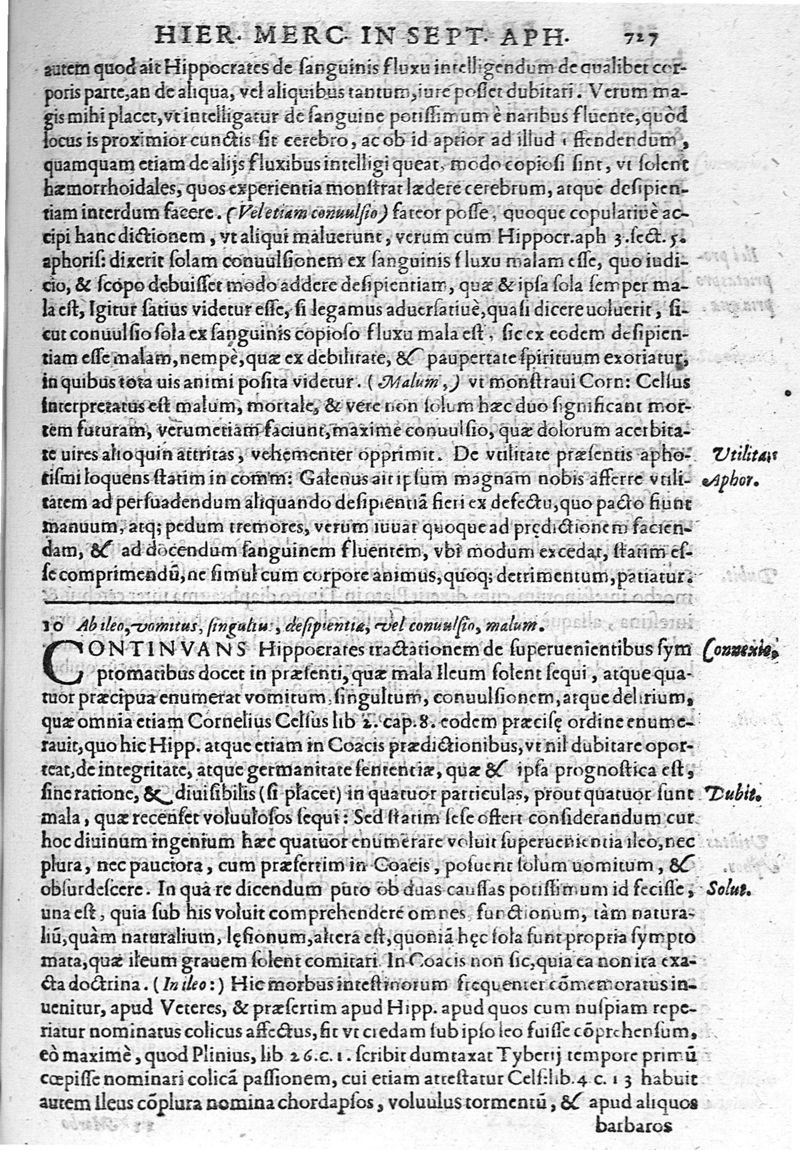 HIER. MERC. IN SEPT. APH. 727
autem quod ait Hippocrates de sanguinis fluxu intelligendum de qualibet cor-
poris parte, an de aliqua, vel aliquibus tantum, iure posset dubitari. Verum ma-
gis mihi placet, vt intelligatur de sanguine potissimum è naribus fluente, quòd
locus is proximior cunctis sit cerebro, ac ob id aptior ad illud ffendendum,
quamquam etiam de alijs fluxibus intelligi queat, modo copiosi sint, vt solent
hæmorrhoidales, quos experientia monstrat lædere cerebrum, atque desipien-
tiam interdum facere. (Vel etiam conuulsio) fateor posse, quoque copulatiuè ac-
cipi hanc dictionem, vt aliqui maluerunt, verum cum Hippocr. aph 3. sect. 5.
aphoris: dixerit solam conuulsionem ex sanguinis fluxu malam esse, quo iudi-
cio, & scopo debuisset modo addere desipientiam, quæ & ipsa sola semper ma-
la est, Igitur satius videtur esse, si legamus aduersatiuè, quasi dicere uoluerit, si-
cut conuulsio sola ex sanguinis copioso fluxu mala est, sic ex eodem desipien-
tiam esse malam, nempè, quæ ex debilitate, & paupertate spirituum exoriatur,
in quibus tota uis animi posita videtur. (Malum,) vt monstraui Corn: Celsus
interpretatus est malum, mortale, & vere non solum hæc duo significant mor-
tem futuram, verumetiam faciunt, maxime conuulsio, quæ dolorum acerbita-
te uires alioquin attritas, vehementer opprimit. De vtilitate præsentis apho- Vtilitas
rismi loquens statim in comm: Galenus ait ipsum magnam nobis afferre vtili- Aphor.
tatem ad persuadendum aliquando desipientiā fieri ex defectu, quo pacto fiunt
manuum, atq; pedum tremores, verum iuuat quoque ad prędictionem facien-
dam, & ad docendum sanguinem fluentem, vbi modum excedat, statim es-
se comprimendū, ne simul cum corpore animus, quoq; detrimentum, patiatur.
10 Ab ileo, vomitus, singultus, desipientia, vel conuulsio, malum.
CONTINVANS Hippocrates tractationem de superuenientibus sym Connexio,
ptomatibus docet in præsenti, quæ mala Ileum solent sequi, atque qua-
tuor præcipua enumerat vomitum, singultum, conuulsionem, atque delirium,
quæ omnia etiam Cornelius Celsus lib 2. cap. 8. eodem præcisę ordine enume-
rauit, quo hic Hipp. atque etiam in Coacis prædictionibus, vt nil dubitare opor-
teat, de integritate, atque germanitate sententiæ, quæ & ipsa prognostica est,
sine ratione, & diuisibilis (si placet) in quatuor particulas, prout quatuor sunt Dubit.
mala, quæ recenset voluulosos sequi: Sed statim sese offert considerandum cur
hoc diuinum ingenium hæc quatuor enumerare voluit superuenientia ileo, nec
plura, nec pauciora, cum præsertim in Coacis, posuerit solum uomitum, &
obsurdescere. In qua re dicendum puto ob duas caussas potissimum id fecisse, Solut.
una est, quia sub his voluit comprehendere omnes functionum, tàm natura-
liū, quàm naturalium, lęsionum, altera est, quoniā hęc sola sunt propria sympto
mata, quæ ileum grauem solent comitari. In Coacis non sic, quia ea non ita exa-
cta doctrina. (In ileo:) Hic morbus intestinorum frequenter cōmemoratus in-
uenitur, apud Veteres, & præsertim apud Hipp. apud quos cum nuspiam repe-
riatur nominatus colicus affectus, fit vt credam sub ipso leo fuisse cōprehensum,
eò maximè, quod Plinius, lib 26. c. 1. scribit dumtaxat Tyberij tempore primū
cœpisse nominari colicā passionem, cui etiam attestatur Cels: lib. 4 c. 13 habuit
autem ileus cōplura nomina chordapsos, voluulus tormentū, & apud aliquos
barbaros